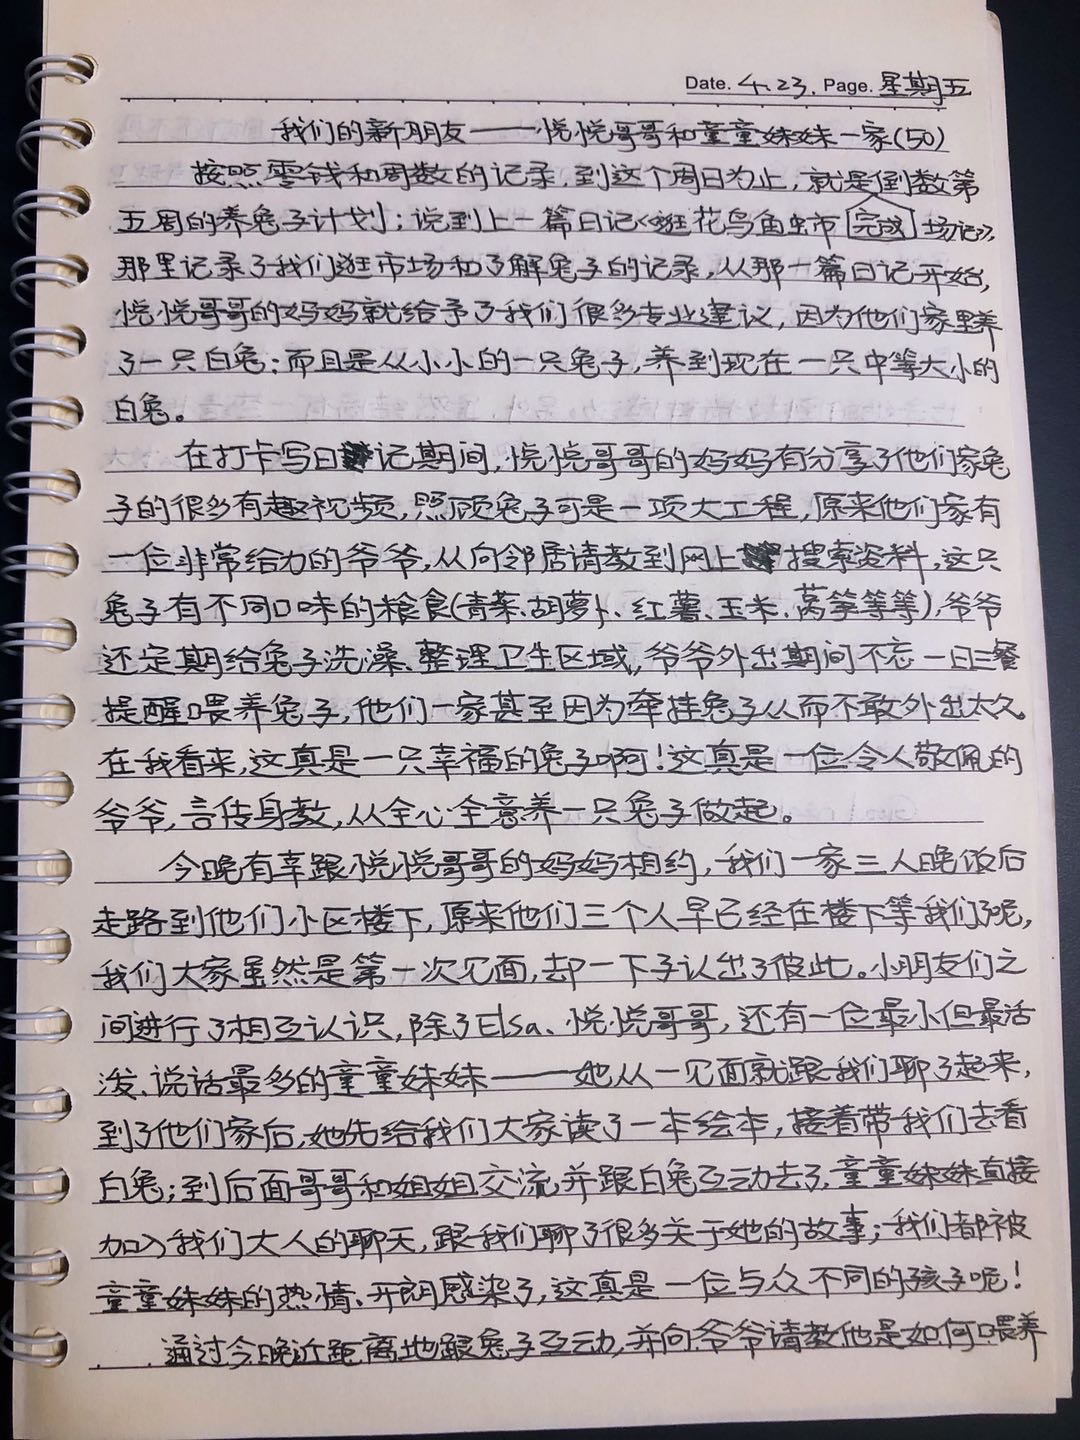 Date. 4.23. Page. 星期五
我们的新朋友——悦悦哥哥和童童妹妹一家(50)
按照零钱和周数的记录,到这个周日为止,就是倒数第
五周的养兔子计划;说到上一篇日记《逛花鸟鱼虫市完成场记》,
那里记录了我们逛市场和了解兔子的记录,从那一篇日记开始,
悦悦哥哥的妈妈就给予了我们很多专业建议,因为他们家里养
了一只白兔;而且是从小小的一只兔子,养到现在一只中等大小的
白兔。
在打卡写日记期间,悦悦哥哥的妈妈有分享了他们家兔
子的很多有趣视频,照顾兔子可是一项大工程,原来他们家有
一位非常给力的爷爷,从向邻居请教到网上搜索资料,这只
兔子有不同口味的粮食(青菜、胡萝卜、红薯、玉米、莴笋等等),爷爷
还定期给兔子洗澡、整理卫生区域,爷爷外出期间不忘一日三餐
提醒喂养兔子,他们一家甚至因为牵挂兔子从而不敢外出太久。
在我看来,这真是一只幸福的兔子啊!这真是一位令人敬佩的
爷爷,言传身教,从全心全意养一只兔子做起。
今晚有幸跟悦悦哥哥的妈妈相约,我们一家三人晚饭后
走路到他们小区楼下,原来他们三个人早已经在楼下等我们了呢,
我们大家虽然是第一次见面,却一下子认出了彼此。小朋友们之
间进行了相互认识,除了Elsa、悦悦哥哥,还有一位最小但最活
泼、说话最多的童童妹妹——她从一见面就跟我们聊了起来,
到了他们家后,她先给我们大家读了一本绘本,接着带我们去看
白兔;到后面哥哥和姐姐交流并跟白兔互动去了,童童妹妹直接
加入我们大人的聊天,跟我们聊了很多关于她的故事;我们都被
童童妹妹的热情、开朗感染了,这真是一位与众不同的孩子呢!
通过今晚近距离地跟兔子互动,并向爷爷请教他是如何喂养